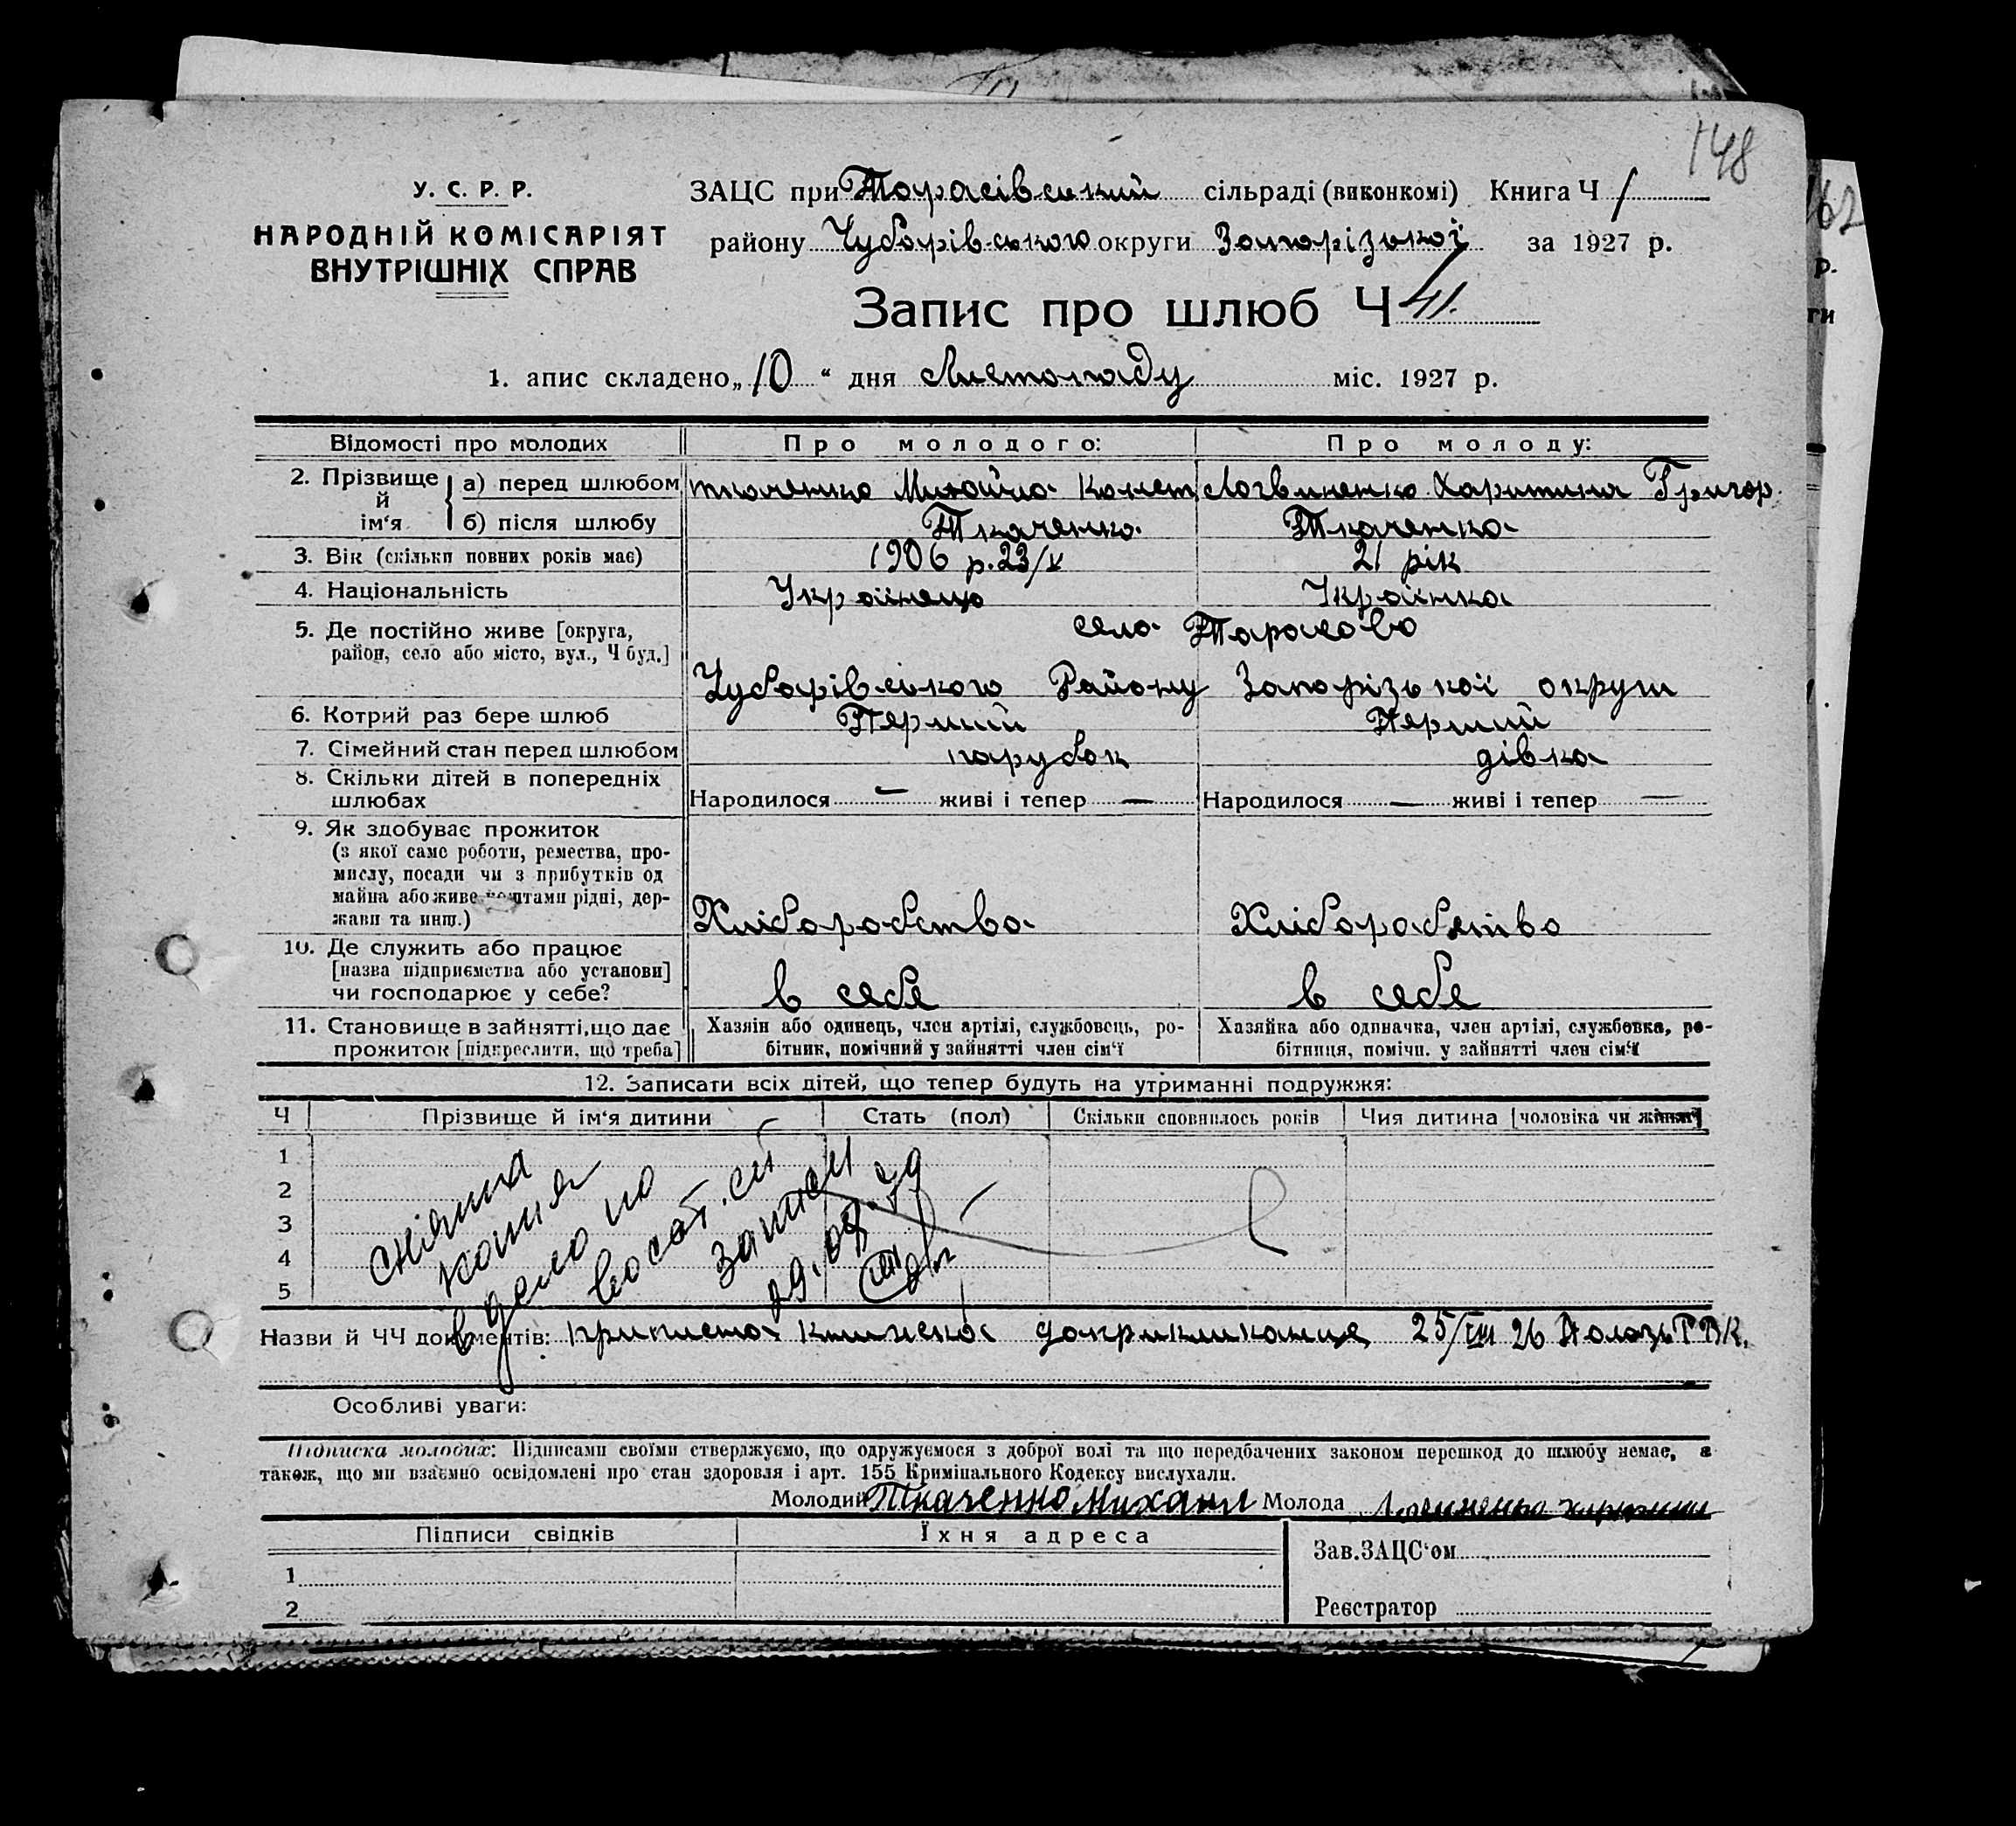 148
У. С. Р. Р.
НАРОДНІЙ КОМІСАРІЯТ
ВНУТРІШНІХ СПРАВ
ЗАЦС при Торасівський сільраді (виконкомі) Книга Ч 1
району Чубарівського округи Запорізької за 1927 р.
Запис про шлюб Ч 41.
1. апис складено „10“ дня Листопаду міс. 1927 р.
Відомості про молодих Про молодого: Про молоду:
2. Прізвище й ім‘я
а) перед шлюбом ткаченко Михайло Логвиненко Харитина Григор.
б) після шлюбу Ткаченко Ткаченко
3. Вік (скільки повних років має) 1906 р. 23/V 21 рік
4. Національність Українець Українка
5. Де постійно живе [округа, село Тарасово
район, село або місто, вул., Ч буд.]
Чубарівського Району Запорізької округи
6. Котрий раз бере шлюб Перший Перший
7. Сімейний стан перед шлюбом парубок дівка
8. Скільки дітей в попередніх
шлюбах Народилося — живі і тепер — Народилося — живі і тепер —
9. Як здобуває прожиток
(з якої саме роботи, ремества, про-
мислу, посади чи з прибутків од
майна або живе коштами рідні, дер-
жави та инш.) Хліборобство Хліборобство
10. Де служить або працює
[назва підприємства або установи]
чи господарює у себе? в себе в себе
11. Становище в зайнятті, що дає Хазяін або одинець, член артілі, службовець, ро- Хазяйка або одиначка, член артілі, службовка, ро-
прожиток [підкреслити, що треба] бітник, помічний у зайнятті член сім‘ї бітниця, помічн. у зайнятті член сім‘ї
12. Записати всіх дітей, що тепер будуть на утриманні подружжя:
Ч Прізвище й ім‘я дитини Стать (пол) Скільки сповнилось років Чия дитина [чоловіка чи жінки]
1
2
3
4
5
снята
копия
в дело по
восст.
записи
29.09.
Назви й ЧЧ документів: приписна книжека допризивника 25/VIII 26 РВК.
Особливі уваги:
Підписка молодих: Підписами своїми стверджуємо, що одружуємося з доброї волі та що передбачених законом перешкод до шлюбу немає, а
також, що ми взаємно освідомлені про стан здоровля і арт. 155 Кримінального Кодексу вислухали.
Молодий Ткаченко Михаил Молода
Підписи свідків Їхня адреса
Зав.ЗАЦС‘ом
1
2
Реєстратор